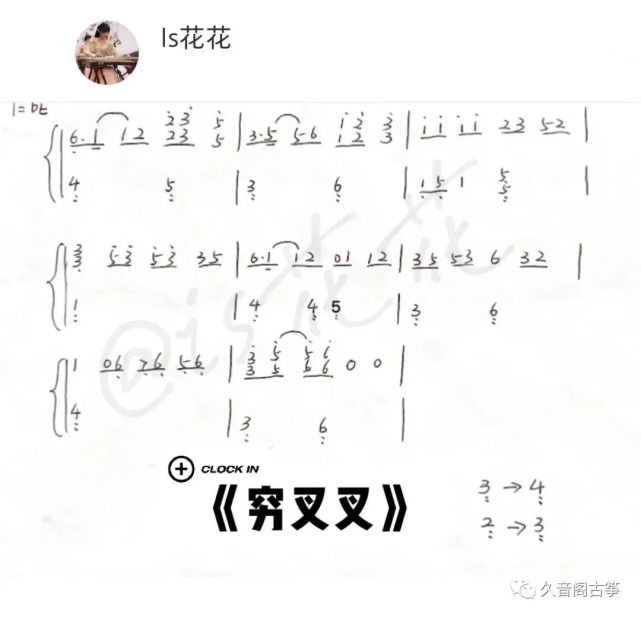 ls花花
1=bE
2 3 5 1 2 3
6·1 12 23 5 | 3·5 5 6 12 3 | 1 1 1 1 23 52 |
4 5 | 3 6 | 15 1 5 5 |
3 3 53 53 35 | 6·1 12 01 12 | 35 53 6 32 |
1 | 4 4 5 | 3 6
1 06 76 56 | 3 5 5 6
3 5 5 6 0 0 |
4 | 3 6 |
@is花花
CLOCK IN
《穷叉叉》
3→4
2→3
久音阁古筝